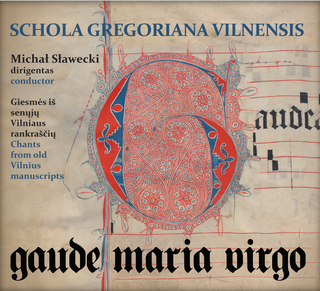 SCHOLA GREGORIANA VILNENSIS
Michał Sławecki
dirigentas
conductor
Giesmės iš
senųjų
Vilniaus
rankraščių
Chants
from old
Vilnius
manuscripts
G
aude
gaude maria virgo